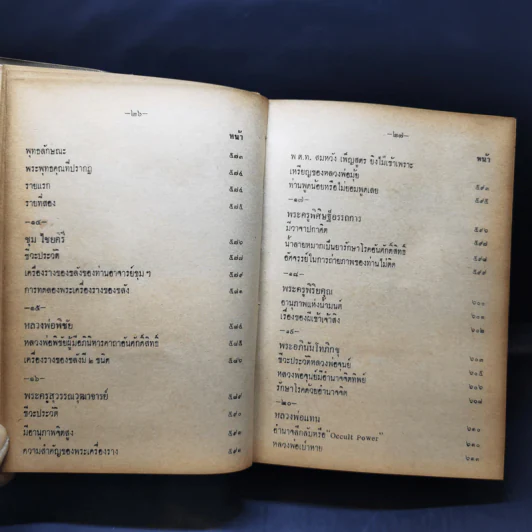 —๒๖—
หน้า
พุทธลักษณะ ๕๗๓
พระพุทธคุณที่ปรากฏ ๕๗๕
รายแรก ๕๗๕
รายที่สอง ๕๗๕
—๑๔—
ชุม ไชยคีรี ๕๗๖
ชีวะประวัติ ๕๗๖
เครื่องรางของขลังของท่านอาจารย์ชุม ๆ
การทดลองพระเครื่องรางของขลัง ๕๘๑
—๑๕—
หลวงพ่อพิชัย
หลวงพ่อพิชัยผู้มีอภินิหารคาถาอันศักดิ์สิทธิ์
เครื่องรางของขลังมี ๒ ชนิด ๕๘๖
—๑๖—
พระครูสุวรรณวุฒาจารย์
ชีวะประวัติ ๕๙๐
มีอานุภาพจิตสูง ๕๙๑
ความสำคัญของพระเครื่องราง ๕๙๑
—๒๗—
หน้า
พ.ต.ท. สมหวัง เพ็ญสูตร ยิงไม่เข้าเพราะ
เหรียญของหลวงพ่อมุ้ย ๕๙๓
ท่านพูดน้อยหรือไม่ยอมพูดเลย ๕๙๕
—๑๗—
พระครูพิศิษฐ์อรรถการ
มีวาจาปกาศิต ๕๙๖
น้ำลายหมากเป็นยารักษาโรคอันศักดิ์สิทธิ์ ๕๙๘
อัศจรรย์ในการถ่ายภาพของท่านไม่ติด ๕๙๙
—๑๘—
พระครูพิริยคุณ
อานุภาพแห่งน้ำมนต์ ๖๐๐
เรื่องของผีเข้าเจ้าสิง ๖๐๒
—๑๙—
พระอภินันโทภิกขุ
ชีวะประวัติหลวงพ่อจุนย์ ๖๐๓
หลวงพ่อจุนย์มีอำนาจจิตทิพย์ ๖๐๖
รักษาโรคด้วยอำนาจจิต ๖๐๗
—๒๐—
หลวงพ่อแทน
อำนาจลึกลับหรือ "Occult Power" ๖๑๐
หลวงพ่อเป่าหาย ๖๑๑